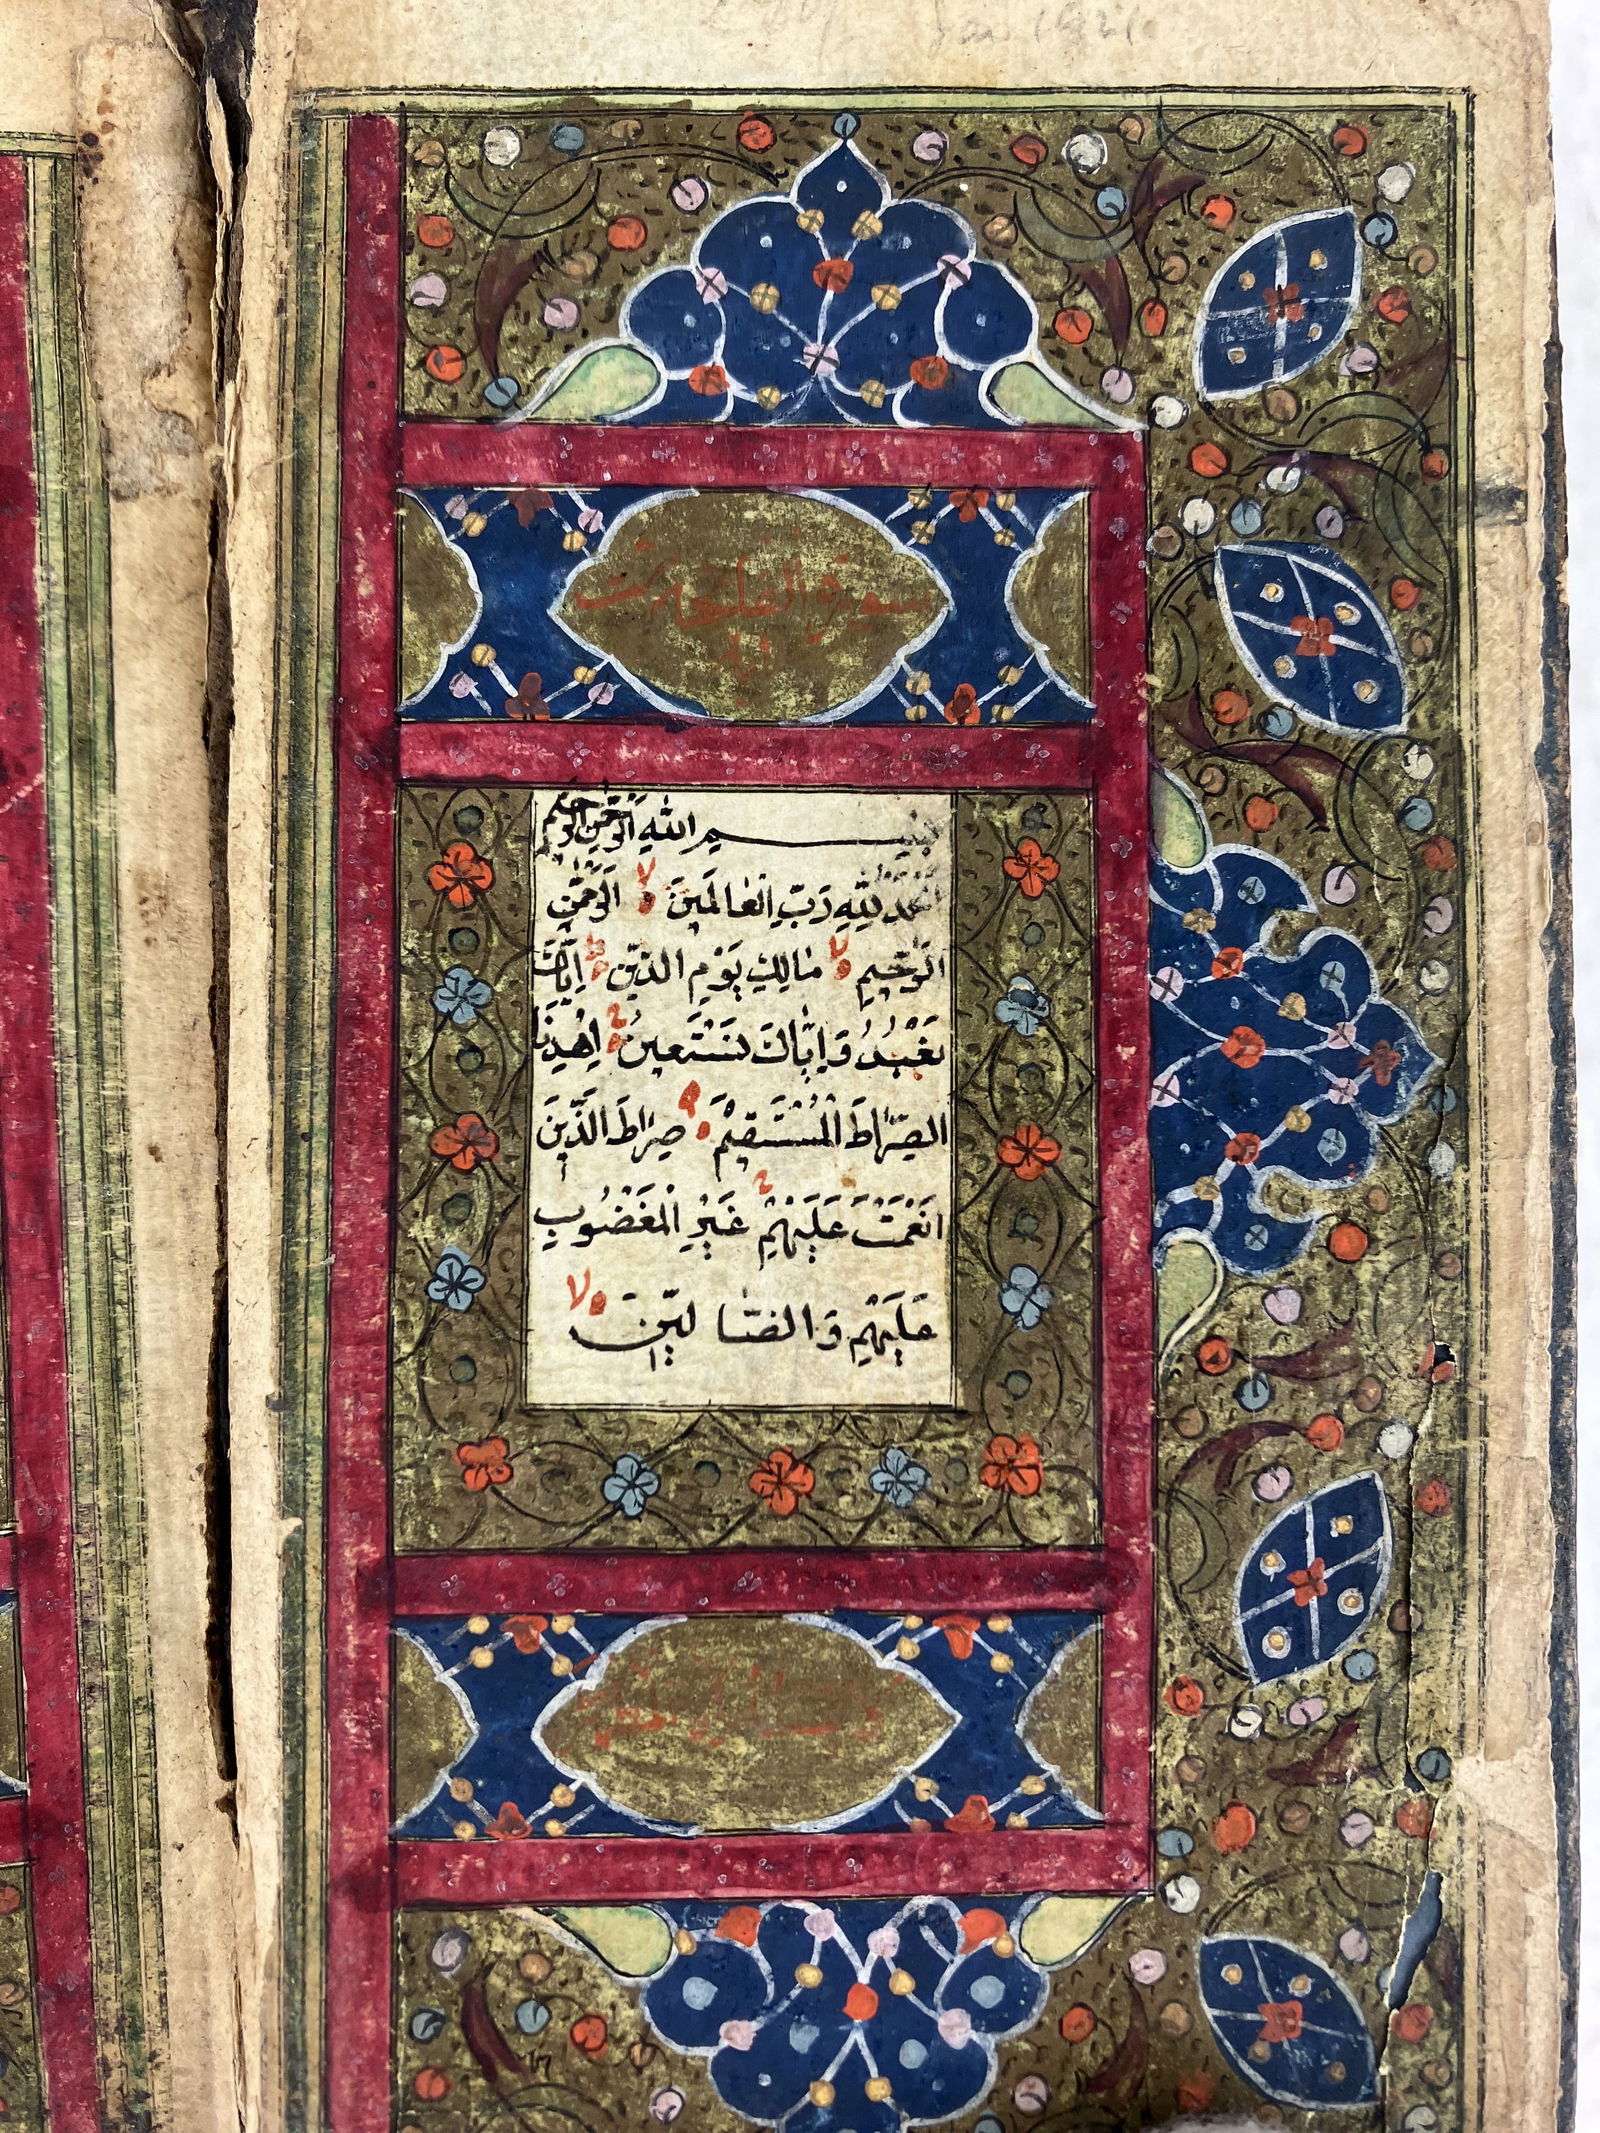 سورة الفاتحة
بسم الله الرحمن الرحيم
الحمد لله رَبِّ الْعَالَمِينَ الرَّحْمٰنِ
الرَّحِيمِ مَالِكِ يَوْمِ الدِّينِ اِيَّاكَ
نَعْبُدُ وَاِيَّاكَ نَسْتَعِينُ اِهْدِنَا
الصِّرَاطَ الْمُسْتَقِيمَ صِرَاطَ الَّذِينَ
اَنْعَمْتَ عَلَيْهِمْ غَيْرِ الْمَغْضُوبِ
عَلَيْهِمْ وَالضَّا لِّينَ